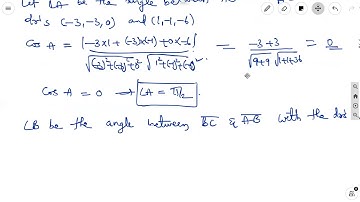 Let ∠A be the angle between
dr's (-3,-3,0) and (1,-1,-6)
Cos A = |-3×1 + (-3)×(-1) + 0×-6| / √((-3)²+(-3)²+0²) √(1²+(-1)²+(-6)²) = -3+3 / √9+9 √1+1+36 = 0
Cos A = 0 → ∠A = π/2
∠B be the angle between BC & AB with the dr's